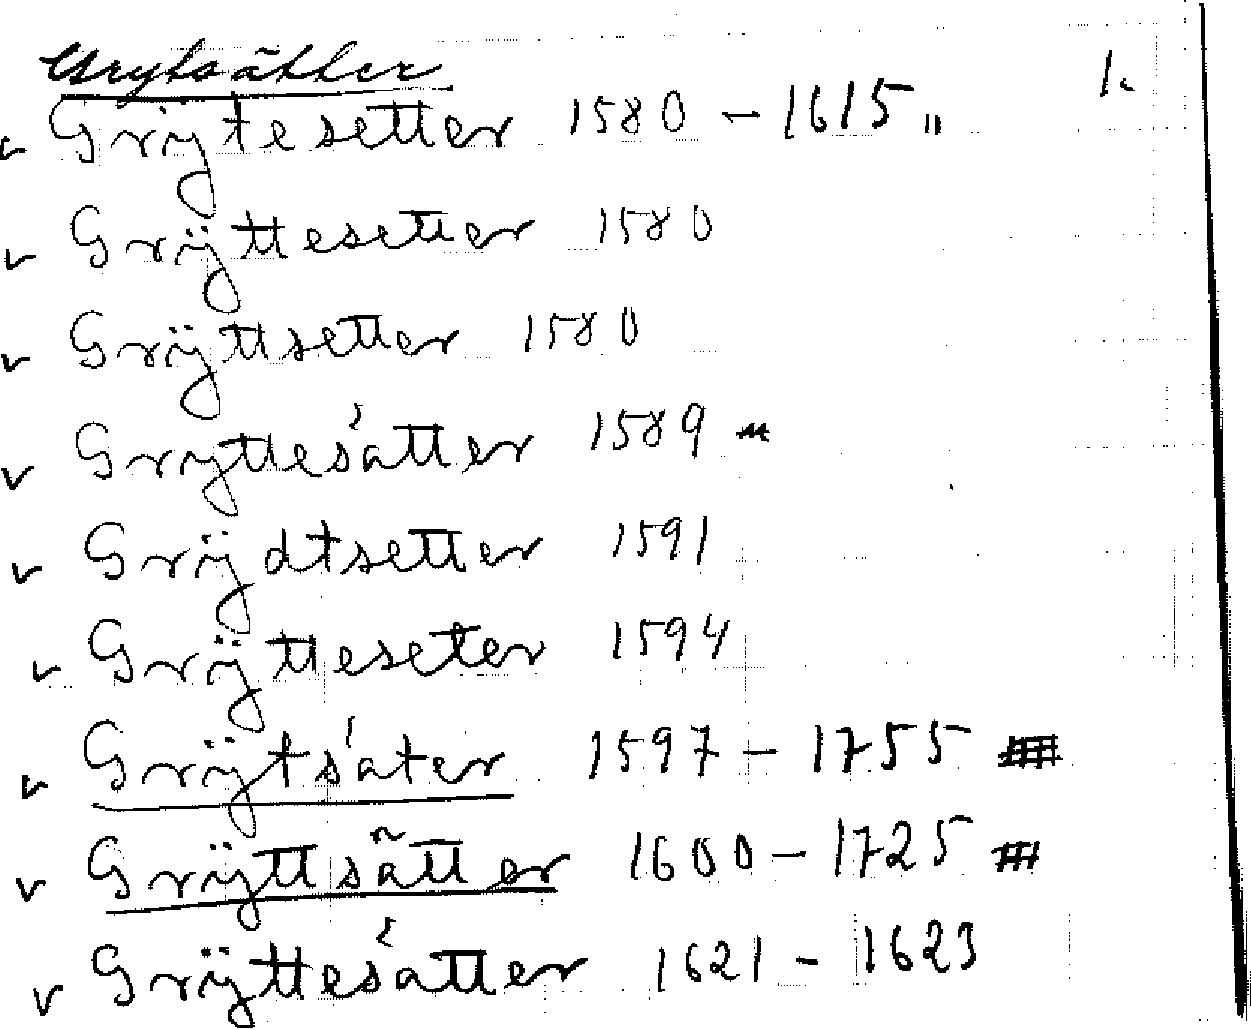 Grytsätter
1.
v Grÿtesetter 1580 – 1615 "
v Grÿttesetter 1580
v Grÿttsetter 1580
v Gryttesätter 1589
v Grÿdtsetter 1591
v Grÿtteseter 1594
v Grÿtsäter 1597 – 1755
v Grÿttsätter 1600 – 1725
v Grÿttesätter 1621 – 1623